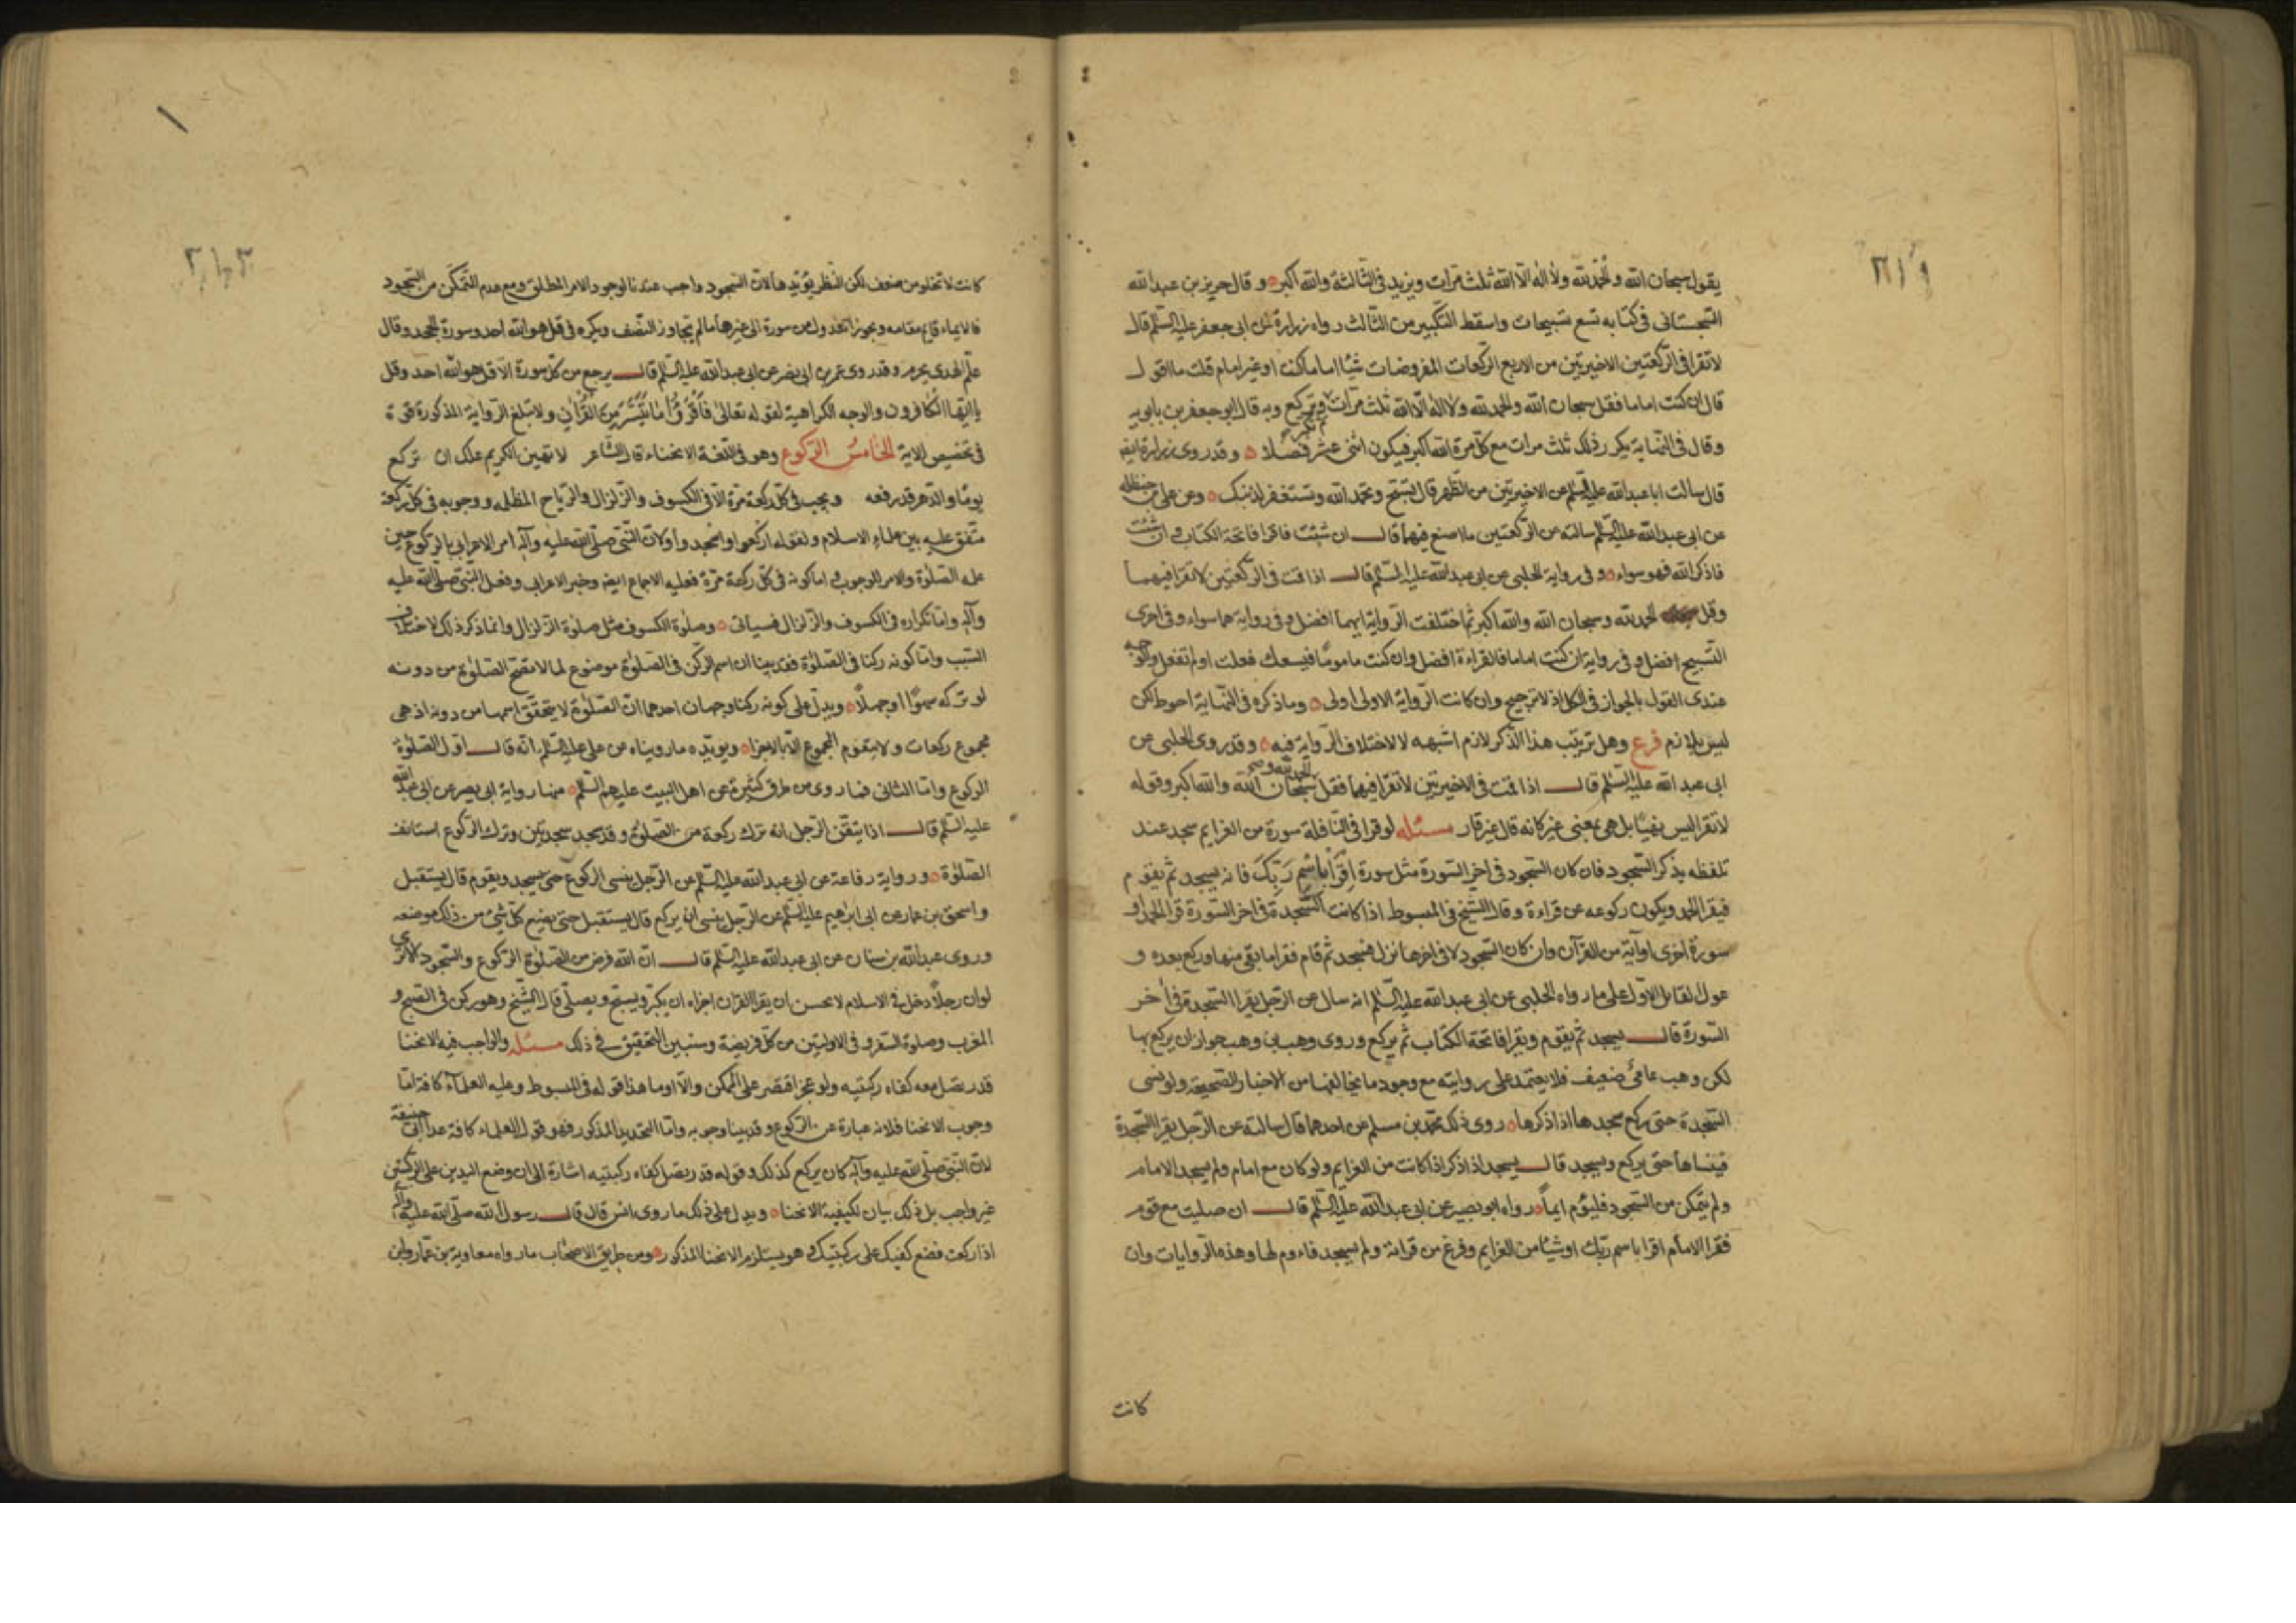 يقول سبحان الله والحمد لله ولا اله الا الله ثلث مرات ويزيد في الثالثة والله اكبر و قال حريز بن عبد الله
السجستاني في كتابه تسع تسبيحات واسقط التكبير من الثالث رواه زرارة عن ابي جعفر عليه السلم قال
لا تقرا في الركعتين الاخيرتين من الاربع الركعات المفروضات شيئا اماما كنت او غير امام قلت ما اقول
قال ان كنت اماما فقل سبحان الله والحمد لله ولا اله الا الله ثلث مرات ثم تكبر وتركع وبه قال ابو جعفر بن بابويه
وقال في النهاية يكرر ذلك ثلث مرات مع كل مرة الله اكبر فيكون اثنى عشر فصلا و قد روى زرارة ايضا
قال سالت ابا عبد الله عليه السلم عن الاخيرتين من الظهر قال تسبح وتحمد الله وتستغفر لذنبك وعن علي بن حنظلة
عن ابي عبد الله عليه السلم سالته عن الركعتين ما اصنع فيهما قال ان شئت فاقرا فاتحة الكتاب وان شئت
فاذكر الله فهو سواء و في رواية الحلبي عن ابي عبد الله عليه السلم قال اذا قمت في الركعتين لا تقرا فيهما
وقل الحمد لله وسبحان الله والله اكبر ثم اختلفت الرواية ايهما افضل و في رواية هما سواء وفي اخرى
التسبيح افضل و في رواية ان كنت اماما فالقراءة افضل وان كنت ماموما فيسعك فعلت او لم تفعل والوجه
عندي القول بالجواز في الكل اذ لا ترجيح وان كانت الرواية الاولى اولى وما ذكره في النهاية احوط لكن
ليس بلازم فرع وهل ترتيب هذا الذكر لازم اشبهه لا لاختلاف الرواية فيه و قد روى الحلبي عن
ابي عبد الله عليه السلم قال اذا قمت في الاخيرتين لا تقرا فيهما فقل الحمد لله و سبحان الله والله اكبر وقوله
لا تقرا ليس نهيا بل هي بمعنى غير كانه قال غير قار مسئله لو قرا في النافلة سورة من العزايم سجد عند
تلفظه بذكر السجود فان كان السجود في اخر السورة مثل سورة اقرا باسم ربك فانه يسجد ثم يقوم
فيقرا الحمد ويكون ركوعه عن قراءة و قال الشيخ في المبسوط اذا كانت السجدة في اخر السورة قرا الحمد او
سورة اخرى او اية من القرآن وان كان السجود لا في اخرها نزل فسجد ثم قام فقرا ما بقي منها وركع بعده و
عول القائل الاول على ما رواه الحلبي عن ابي عبد الله عليه السلم انه سال عن الرجل يقرا السجدة في اخر
السورة قال يسجد ثم يقوم ويقرا فاتحة الكتاب ثم يركع وروى وهب بن وهب جواز ان يركع بها
لكن وهب عامي ضعيف فلا يعتمد على روايته مع وجود ما يخالفها من الاخبار الصحيحة ولو نسى
السجدة حتى ركع سجدها اذا ذكرها روى ذلك محمد بن مسلم عن احدهما قال سالته عن الرجل يقرا السجدة
فينساها حتى يركع ويسجد قال يسجد اذا ذكر اذا كانت من العزايم ولو كان مع امام ولم يسجد الامام
ولم يتمكن من السجود فليؤم ايماء رواه ابو بصير عن ابي عبد الله عليه السلم قال ان صليت مع قوم
فقرا الامام اقرا باسم ربك او شيئا من العزايم وفرغ من قرائته ولم يسجد فاءوم لها وهذه الروايات وان
كانت
كانت لا تخلو من ضعف لكن النظر يؤيدها لان السجود واجب عندنا لوجود الامر المطلق ومع عدم التمكن من السجود
فالايماء قايم مقامه ويجوز العدول من سورة الى غيرها ما لم يتجاوز النصف ويكره في قل هو الله احد وسورة الجحد وقال
علم الهدى يحرم وقد روى عمر بن ابي نصر عن ابي عبد الله عليه السلم قال يرجع من كل سورة الا قل هو الله احد وقل
يا ايها الكافرون والوجه الكراهية لقوله تعالى فاقرؤا ما تيسر من القرآن ولا تبلغ الرواية المذكورة قوة
في تخصيص الاية الخامس الركوع وهو في اللغة الانحناء قال الشاعر لا تهين الكريم علك ان تركع
يوما والدهر قد رفعه ويجب في كل ركعة مرة الا في الكسوف والزلزال والرياح المظلمه ووجوبه في كل ركعة
متفق عليه بين علماء الاسلام ولقوله اركعوا واسجدوا ولان النبي صلى الله عليه وآله امر الاعرابي بالركوع حين
علمه الصلوة والامر للوجوب و اما كونه في كل ركعة مرة فعليه الاجماع ايضا وخبر الاعرابي وفعل النبي صلى الله عليه
وآله واما تكراره في الكسوف والزلزال فسياتى وصلوة الكسوف مثل صلوة الزلزال وانما ذكر ذلك لاختلاف
السبب واما كونه ركنا في الصلوة فقد بينا ان اسم الركن في الصلوة موضوع لما لا تصح الصلوة من دونه
لو تركه سهوا او جهلا ويدل على كونه ركنا وجهان احدهما ان الصلوة لا يتحقق اسمها من دونه اذ هي
مجموع ركعات ولا يتقوم المجموع الا بالاجزاء ويؤيده ما رويناه عن علي عليه السلم انه قال اول الصلوة
الركوع واما الثاني فما روى من طرق كثيرة عن اهل البيت عليهم السلم منها رواية ابي بصير عن ابي عبد الله
عليه السلم قال اذا تيقن الرجل انه ترك ركعة من الصلوة وقد سجد سجدتين وترك الركوع استانف
الصلوة و رواية رفاعة عن ابي عبد الله عليه السلم عن الرجل ينسى الركوع حتى يسجد ويقوم قال يستقبل
و اسحق بن عمار عن ابي ابراهيم عليه السلم عن الرجل ينسى ان يركع قال يستقبل حتى يضع كل شئ من ذلك موضعه
وروى عبد الله بن سنان عن ابي عبد الله عليه السلم قال ان الله فرض من الصلوة الركوع والسجود الا ترى
لو ان رجلا دخل في الاسلام لا يحسن ان يقرا القرآن اجزاه ان يكبر ويسبح ويصلى قال الشيخ وهو ركن في الصبح و
المغرب وصلوة السفر و في الاوليين من كل فريضة وسنبين التحقيق في ذلك مسئله والواجب فيه الانحنا
قدر تصل معه كفاه ركبتيه ولو عجز اقتصر على الممكن والا اوما هذا قوله في المبسوط وعليه العلماء كافة اما
وجوب الانحنا فلانه عبارة عن الركوع وقد بينا وجوبه واما التحديد المذكور فهو قول العلماء كافة عدا ابي حنيفة
لان النبي صلى الله عليه وآله كان يركع كذلك وقوله قدر تصل كفاه ركبتيه اشارة الى ان وضع اليدين على الركبتين
غير واجب بل ذلك بيان لكيفية الانحنا ويدل على ذلك ما روى انس قال قال رسول الله صلى الله عليه وآله
اذا ركعت فضع كفيك على ركبتيك و هو يستلزم الانحنا المذكور ومن طريق الاصحاب ما رواه معاوية بن عمار وابن